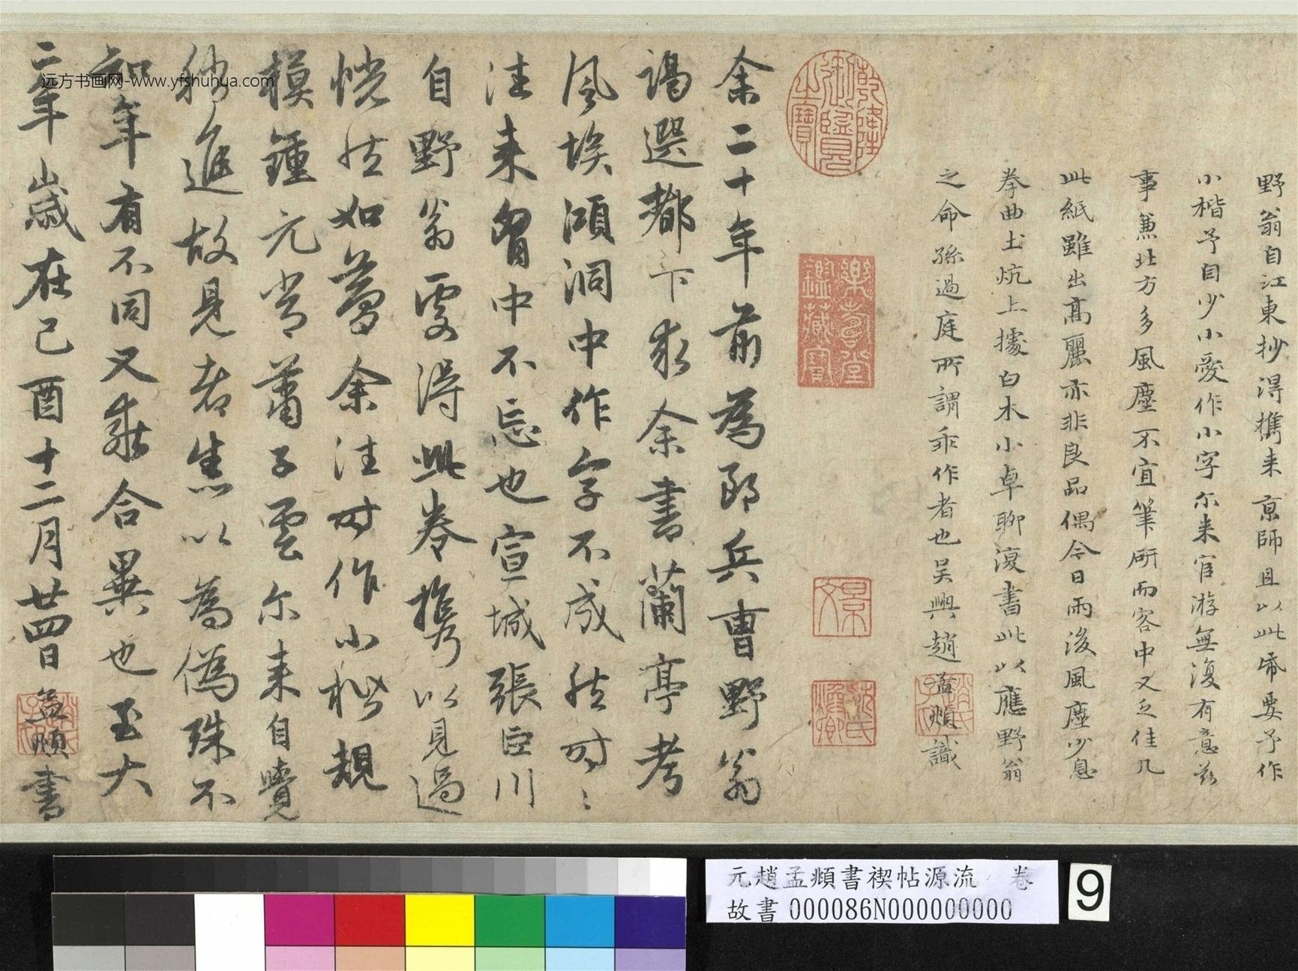 野翁自江東抄得攜來京師且以此㡀要予作
小楷予自少小愛作小字尓來官游無復有意茲
事兼北方多風塵不宜筆研而客中又乏佳几
此紙雖出髙麗亦非良品偶今日雨後風塵少息
拳曲土炕上據白木小卓聊復書此以應野翁
之命孫過庭所謂乖作者也吴興趙孟頫識
乾隆御覽之寶
樂壽堂鑑藏寶
余二十年前為郎兵曹野翁
謁選都下求余書蘭亭考
風埃澒洞中作字不成然時:
往来胷中不忘也宣城張臣川
自野翁處得此卷攜以見過
恍然如夢余往时作小楷規
模鍾元常蕭子雲尓来自覺
稍進故見者焦以為偽殊不
知年有不同又乖合異也至大
二年歲在己酉十二月廿四日孟頫書
远方书画网-www.yfshuhua.com
元趙孟頫書禊帖源流 卷
故書 000086N000000000
9